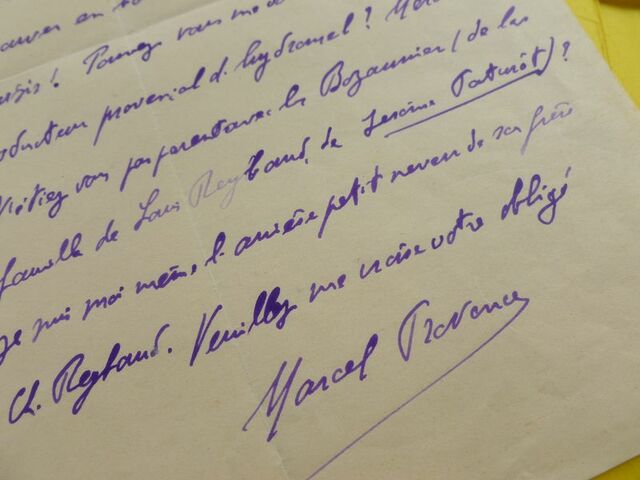 en
! Pouvez vous me
producteur provençal d'hydromel ?
N'étiez vous pas parent avec les Bozonnier (de la
famille de Louis Reybaud, de Jérôme Paturôt) ?
Je suis moi même l'arrière petit neveu de son frère
Ch. Reybaud. Veuillez me croire votre obligé
Marcel Provence